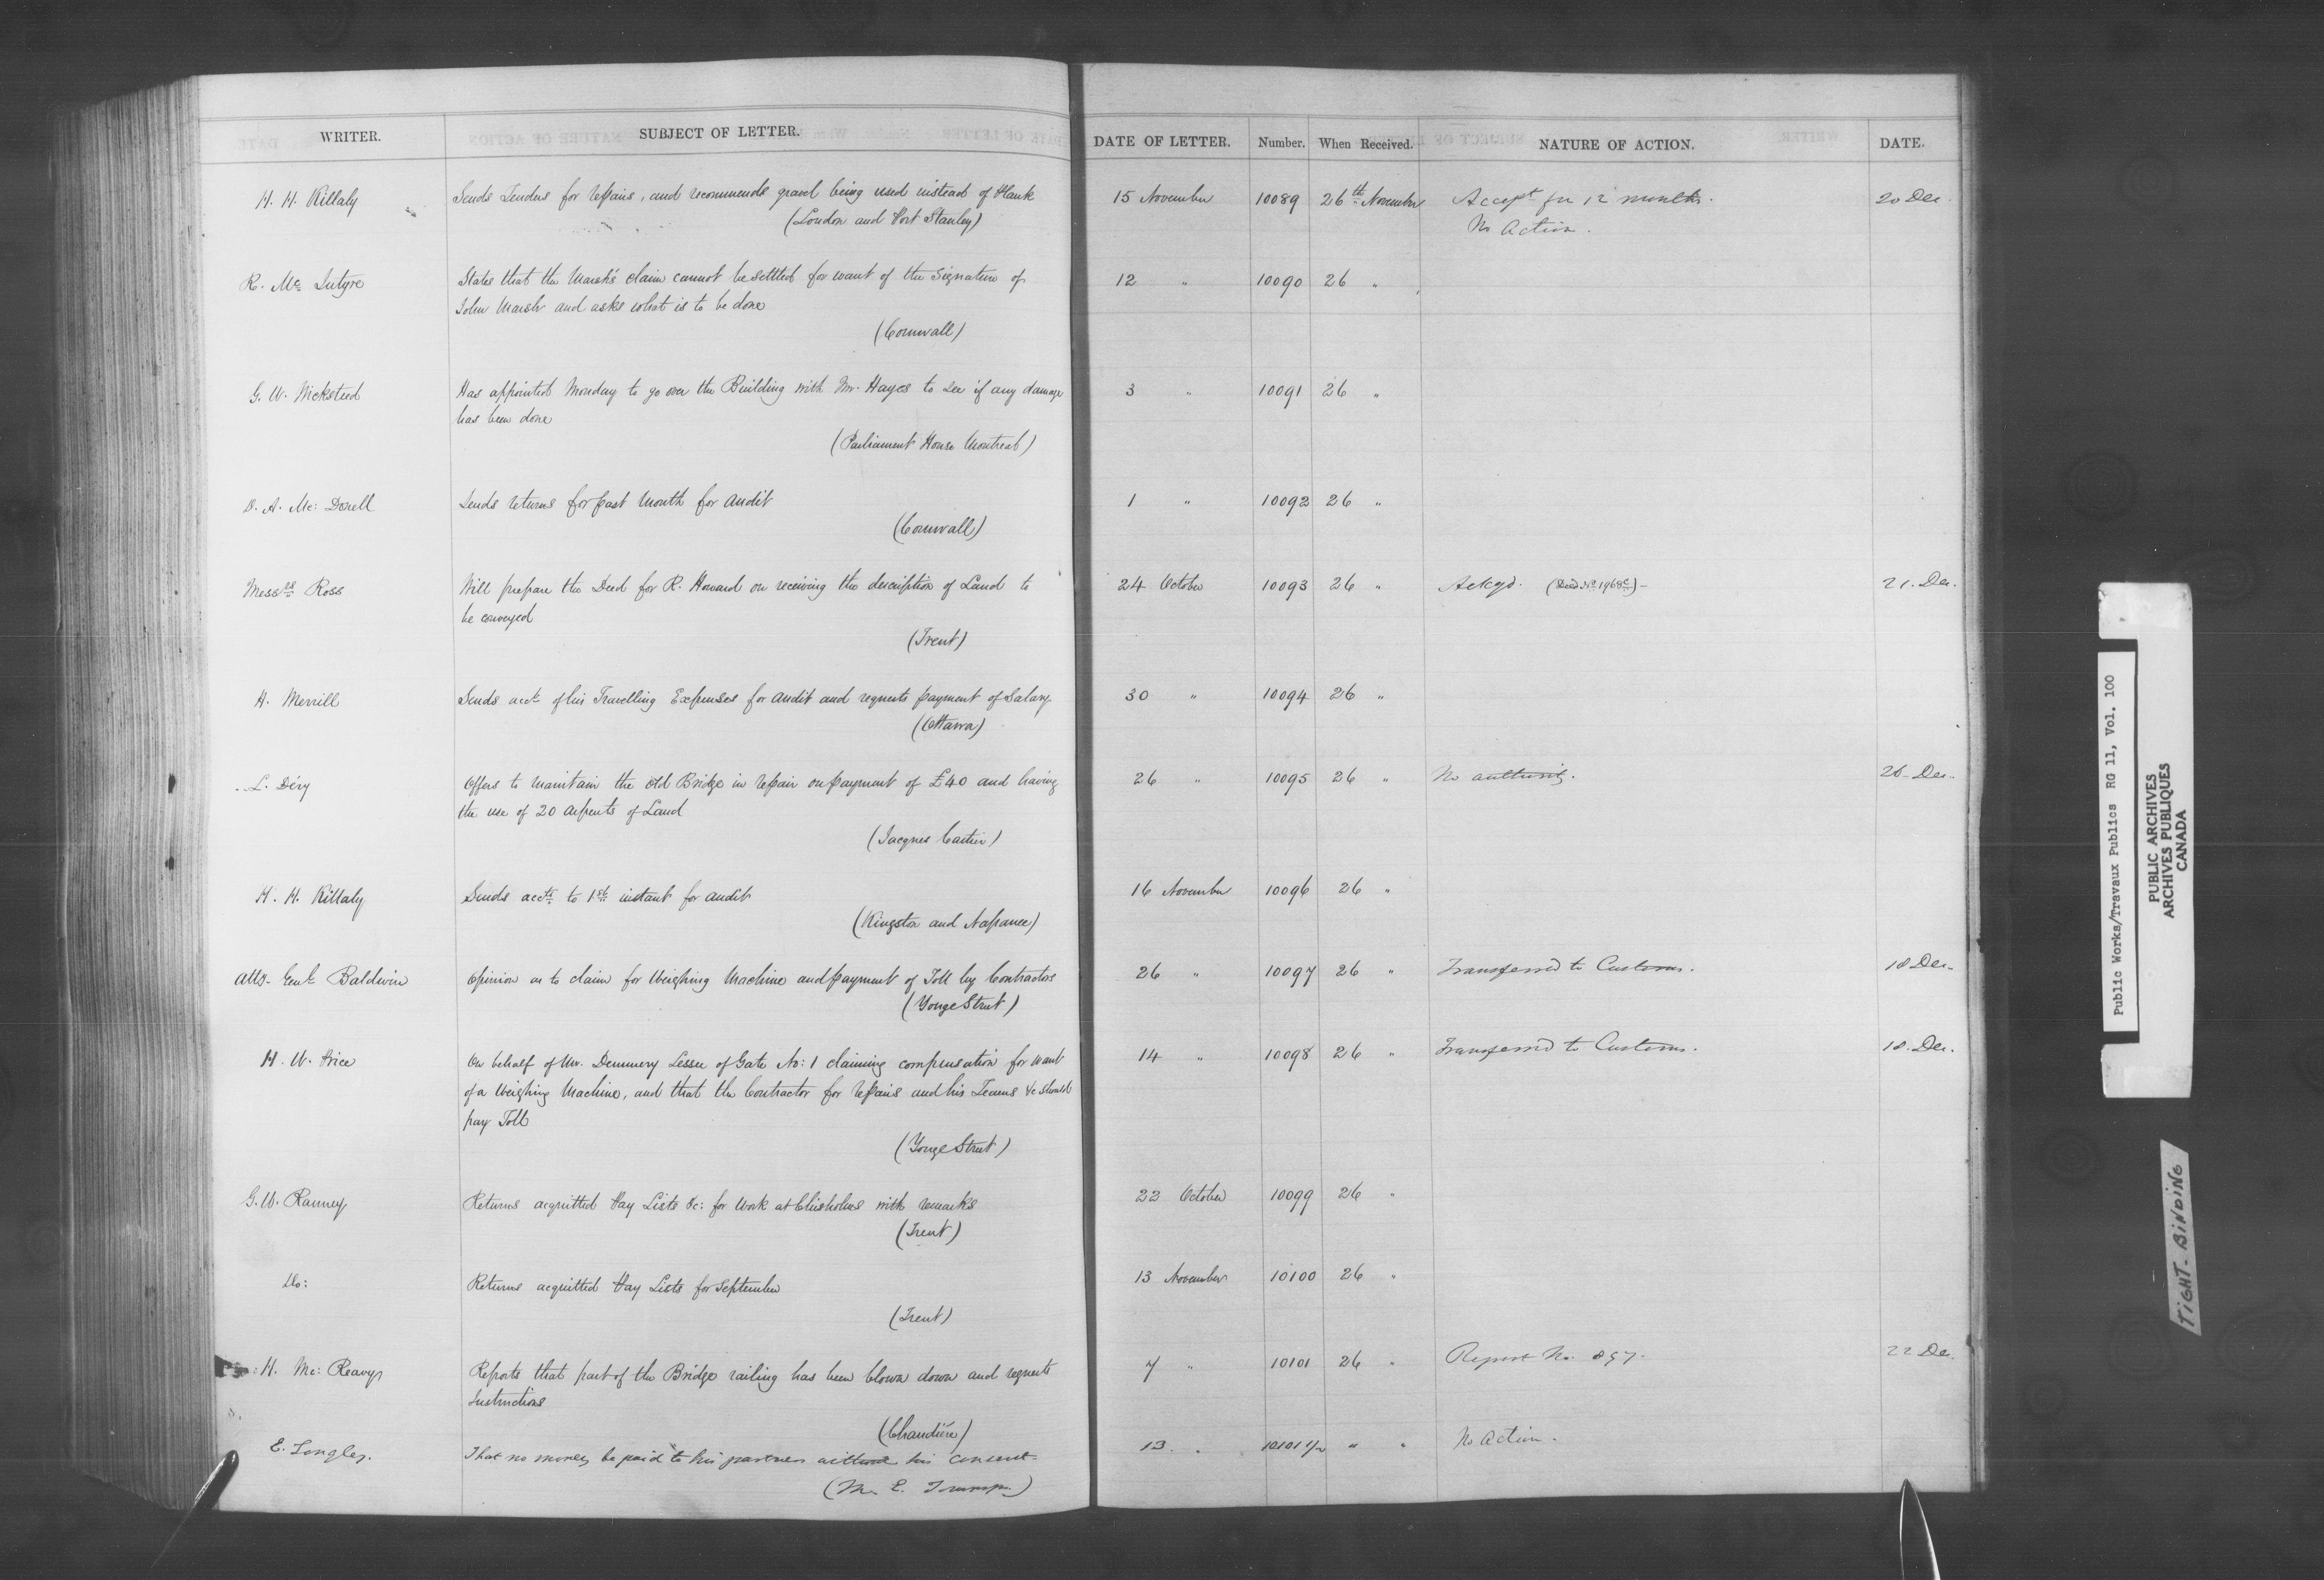 WRITER. SUBJECT OF LETTER. DATE OF LETTER. Number. When Received. NATURE OF ACTION. DATE.
H. H. Killaly Sends Tenders for repairs, and recommends gravel being used instead of Plank 15 November 10089 26th November Accept for 12 months. 20 Dec.
(London and Port Stanley) No Action.
R. Mc Intyre States that the Marsh's claim cannot be settled for want of the Signature of 12 " 10090 26 "
John Marsh and asks what is to be done
(Cornwall)
G. W. Wicksteed Has appointed Monday to go over the Building with Mr. Hayes to see if any damage 3 " 10091 26 "
has been done
(Parliament House Montreal)
D. A. Mc: Donell Sends returns for past Month for audit 1 " 10092 26 "
(Cornwall)
Messrs Ross Will prepare the Deed for R. Howard on receiving the description of Land to 24 October 10093 26 " Ackgd. (Deed No 1968) 21. Dec.
be conveyed
(Trent)
H. Merrill Sends acct of his Travelling Expenses for audit and requests payment of Salary 30 " 10094 26 "
(Ottawa)
L. Déry Offers to maintain the old Bridge in repair on payment of £40 and having 26 " 10095 26 " No authority. 26 Dec.
the use of 20 arpents of Land
(Jacques Cartier)
H. H. Killaly Sends accts to 1st instant for audit 16 November 10096 26 "
(Kingston and Napanee)
Atty. Genl. Baldwin Opinion as to claim for Weighing Machine and payment of Toll by Contractors 26 " 10097 26 " Transferred to Customs. 18 Dec.
(Yonge Street)
H. W. Price On behalf of Mr. Dummery Lessee of Gate No: 1 claiming compensation for want 14 " 10098 26 " Transferred to Customs. 18. Dec.
of a Weighing Machine, and that the Contractor for repairs and his Teams &c should
pay Toll
(Yonge Street)
G. W. Ranney Returns acquitted Pay Lists &c: for work at Chisholms with remarks 22 October 10099 26 "
(Trent)
Do: Returns acquitted Pay Lists for September 13 November 10100 26 "
(Trent)
H. Mc: Reavy Reports that part of the Bridge railing has been blown down and requests 7 " 10101 26 " Report No. 857. 22 Dec.
Instructions
(Chaudière)
E. Longley. That no money be paid to his partner without his consent. 13 " 10101 1/2 " " No Action.
(Mr. E.
Public Works/Travaux Publics RG 11, Vol. 100
PUBLIC ARCHIVES
ARCHIVES PUBLIQUES
CANADA
TIGHT BINDING